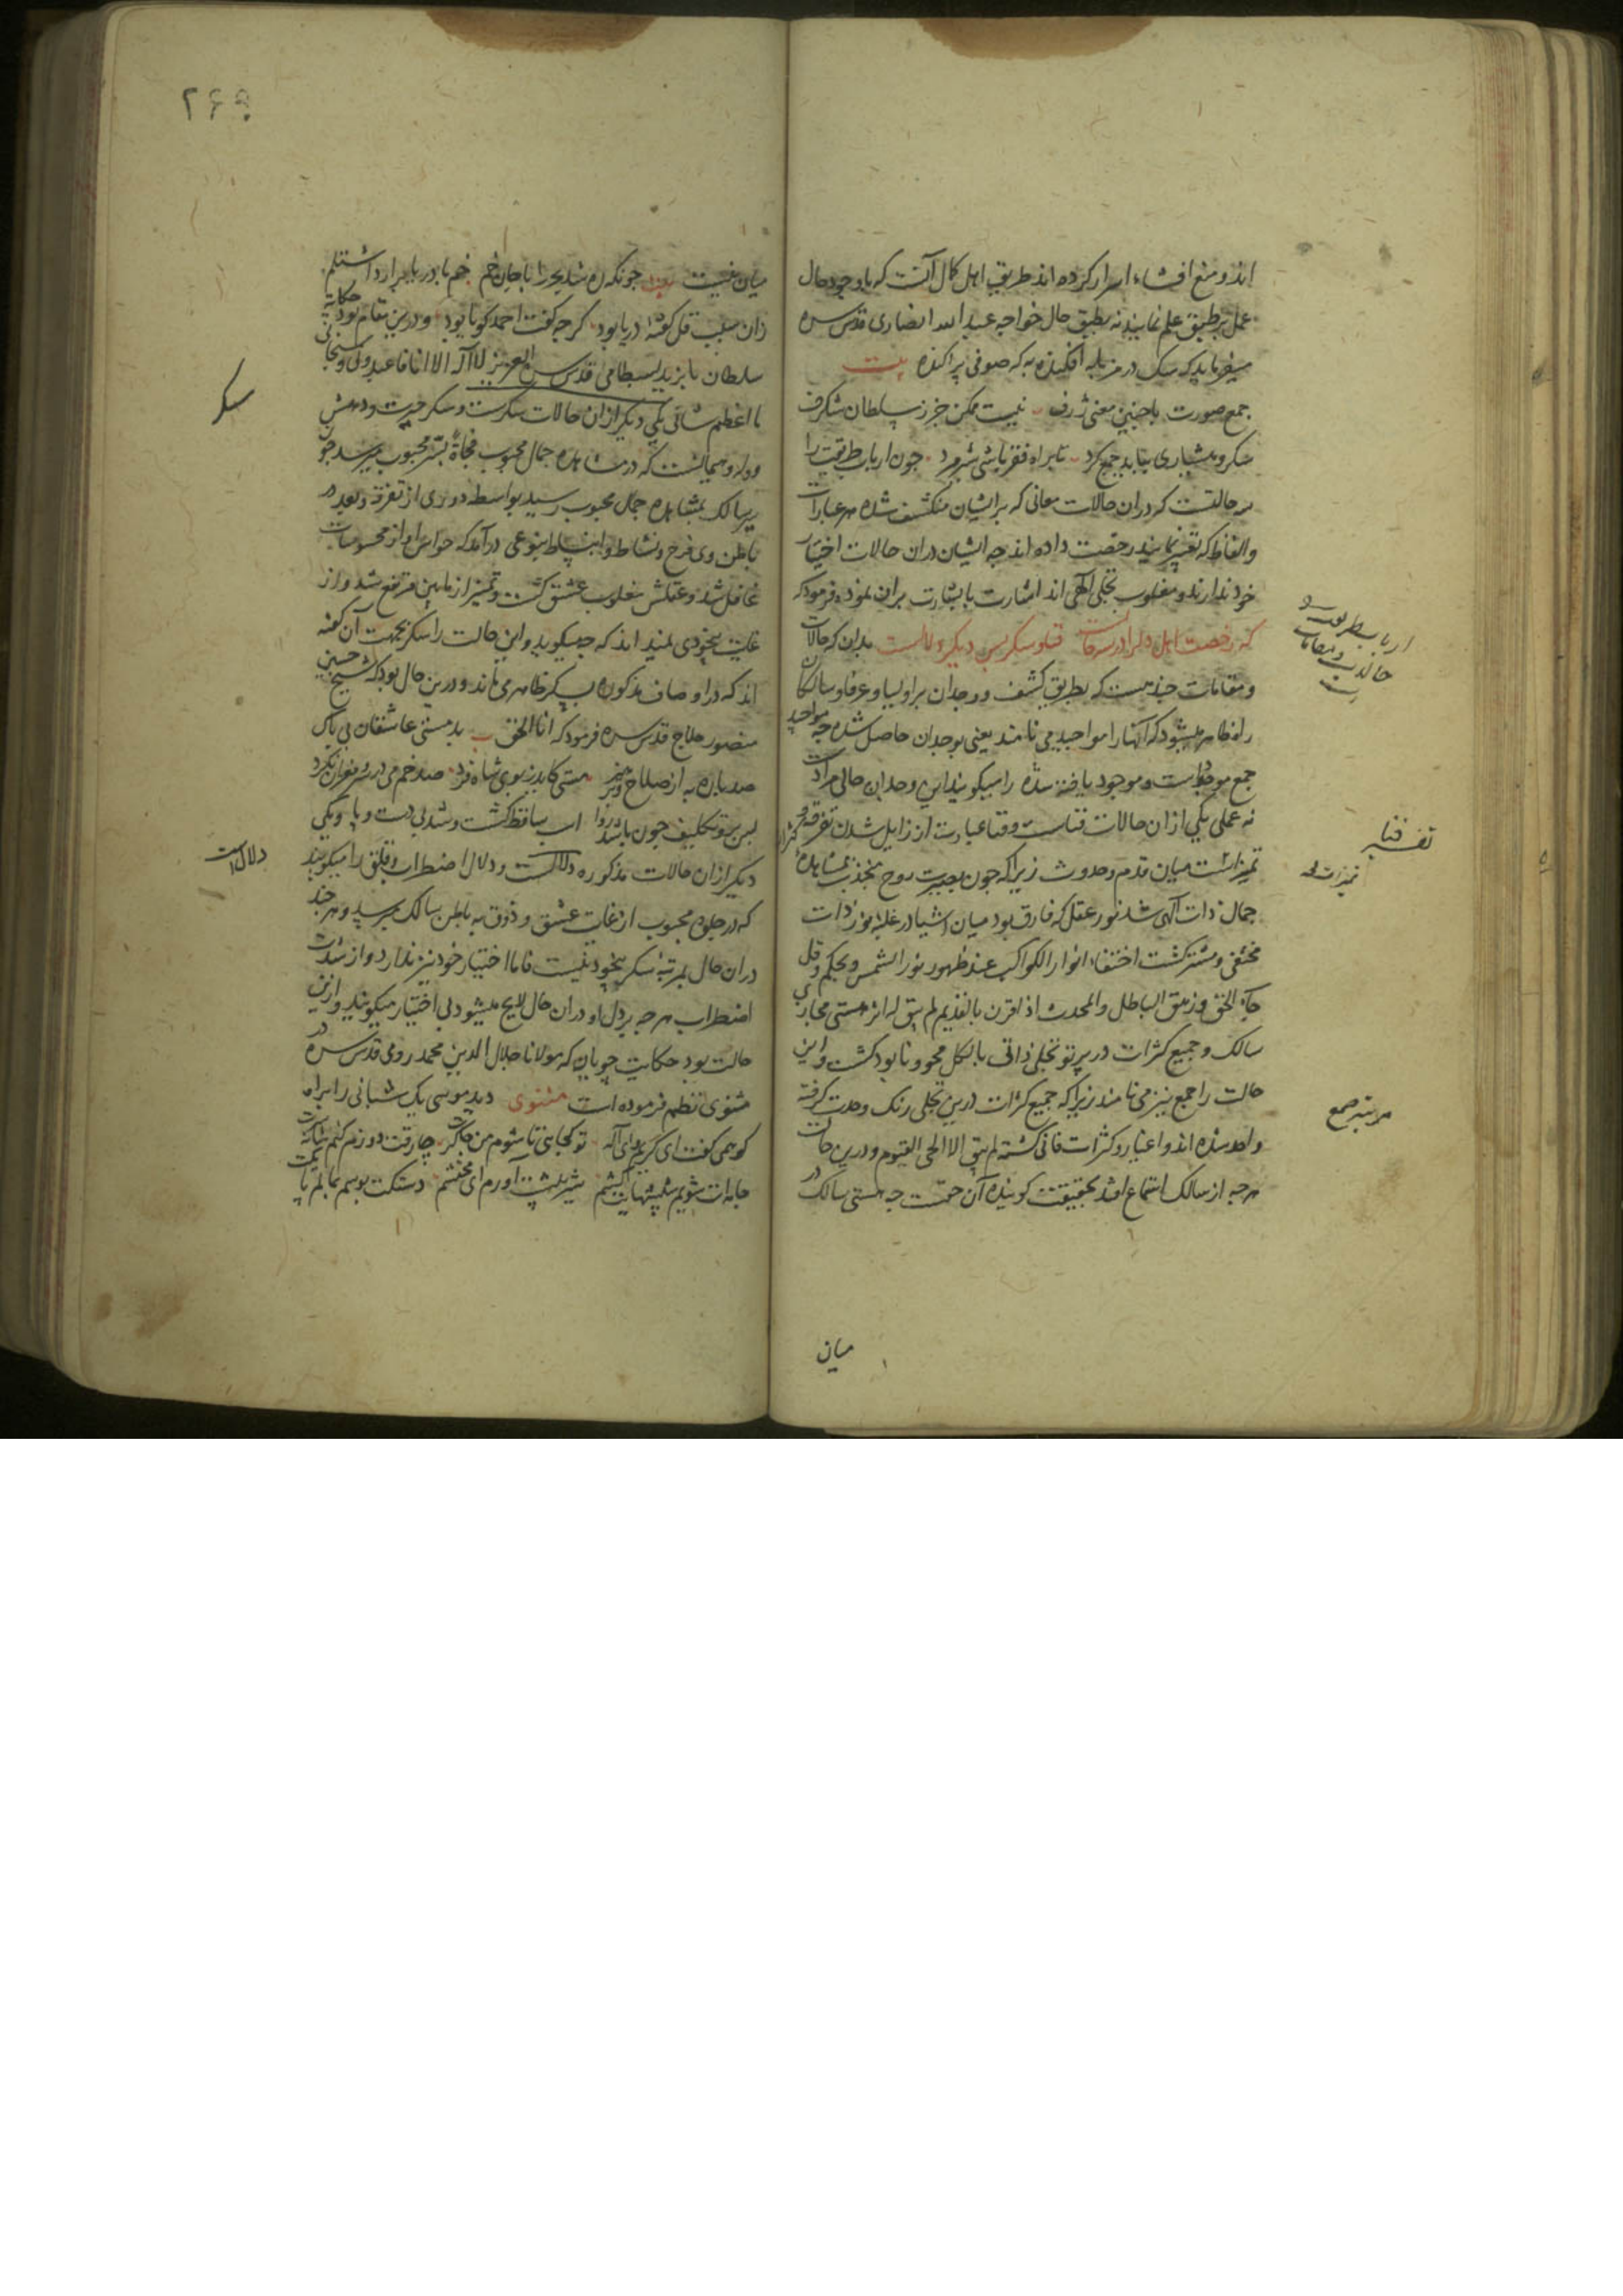 اند و منع افشاء اسرار کرده اند طریق اهل کمال آنست که باوجود حال
عمل بر طبق علم نمایند نه بطبق حال خواجه عبد الله انصاری قدس سره
میفرماید که سک در مزبله افکنده به که صوفی پراکنده بیت
جمع صورت با چنین معنی ژرف نیست ممکن جز ز سلطان شکرف
سکر و هشیاری بباید جمع کرد تا براه فقر باشی شیر مرد چون ارباب طریقت را
سه حالتست که در ان حالات معانی که بر ایشان منکشف شده بهر عبارات
والفاظ که تعبیر نمایند رخصت داده اند چه ایشان دران حالات اختیار
خود ندارند و مغلوب تجلی الهی اند اشارت باشارت بران نموده فرمود که
که رخصت اهل دل را در سه حالست فنا و سکر پس دیکر دلالست بدان که حالات
و مقامات چند هست که بطریق کشف و وجدان بر اولیا و عرفا و سالکان
راه ظاهر میشود که آنها را مواجید می نامند یعنی بوجدان حاصل شده چه مواجید
جمع موجود است و موجود یافته شده را میکویند این وجدان حالی مرادست
نه عملی یکی ازان حالات فناست و فنا عبارت از زایل شدن تفرقه و
تمیز است میان قدم و حدوث زیرا که چون بصیرت روح منجذب بمشاهدهٔ
جمال ذات الهی شد نور عقل که فارق بود میان اشیا در غلبهٔ نور ذات
مختفی و مستتر کشت اختفاء انوار الکواکب عند ظهور نور الشمس و بحکم و قل
جاء الحق و زهق الباطل والمحدث اذا قرن بالقدیم لم یبق له اثر هستی مجازی
سالک و جمیع کثرات در پرتو تجلی ذاتی بالکل محو و نابود کشت و این
حالت را جمع نیز می نامند زیرا که جمیع کثرات درین تجلی رنک وحدت کرفته
واحد شده اند و اغیار و کثرات فانی کشته لم یبق الا الحی القیوم و درین حالت
هر چه از سالک استماع افتد بحقیقت کوینده آن حقست چه هستی سالک در
میان
ارباب طریقت
حالات و مقامات
تفسیر فنا
تمیز است
مرتبهٔ جمع
۲۶۹
میان نیست چونکه ره شد بحر را با جان خم خم با دریا برآرد اشتلم
زان سبب قل کفتهٔ دریا بود کر چه کفت احمد کویا بود و درین مقام بود حکایت
سلطان بایزید بسطامی قدس سره العزیز لا اله الا انا فاعبدونی و سبحانی
ما اعظم شانی یکی دیکر ازان حالات سکرست و سکر حیرت و دهش
و وله و هیمانست که در مشاهدهٔ جمال محبوب فجاةً بسر محبوب میرسد چون
سر سالک بمشاهده جمال محبوب رسید بواسطه دوری از تفرقه و بعد در
باطن وی فرح و نشاط و انبساط بنوعی درآمد که حواس او از محسوسات
غافل شد و عقلش مغلوب عشق کشت و تمیز از مابین مرتفع شد و از
غایت بیخودی نمیداند که چه میکوید و این حالت را سکر بجهت آن کفته
اند که در اوصاف مذکوره بسکر ظاهر می ماند و درین حال بود که شیخ حسین
منصور حلاج قدس سره فرمود که انا الحق بدمستی عاشقان بی باک
صد باره به از صلاح و پرهیز مستی کاید ز بوی شاه فرد صد خم می در سر و مغز ان نکرد
پس برو تکلیف چون باشد روا اسب ساقط کشت و شد بی دست و پا و یکی
دیکر ازان حالات مذکوره دلالست و دلال اضطراب و قلق را میکویند
که در جلوهٔ محبوب از غایت عشق و ذوق به باطن سالک میرسد و هر چند
دران حال بمرتبهٔ سکر بیخود نیست فاما اختیار خود نیز ندارد و از شدت
اضطراب هر چه بر دل او دران حال لایح میشود بی اختیار میکوید و ازین
حالت بود حکایت چوپان که مولانا جلال الدین محمد رومی قدس سره در
مثنوی نظم فرموده است مثنوی دید موسی یک شبانی را براه
کو همی کفت ای کریم وای اله تو کجایی تا شوم من چاکرت چارقت دوزم کنم شانه سرت
جامه ات شویم شپشهایت کشم شیر پیشت آورم ای محتشم دستکت بوسم بمالم پایکت
سکر
دلال است